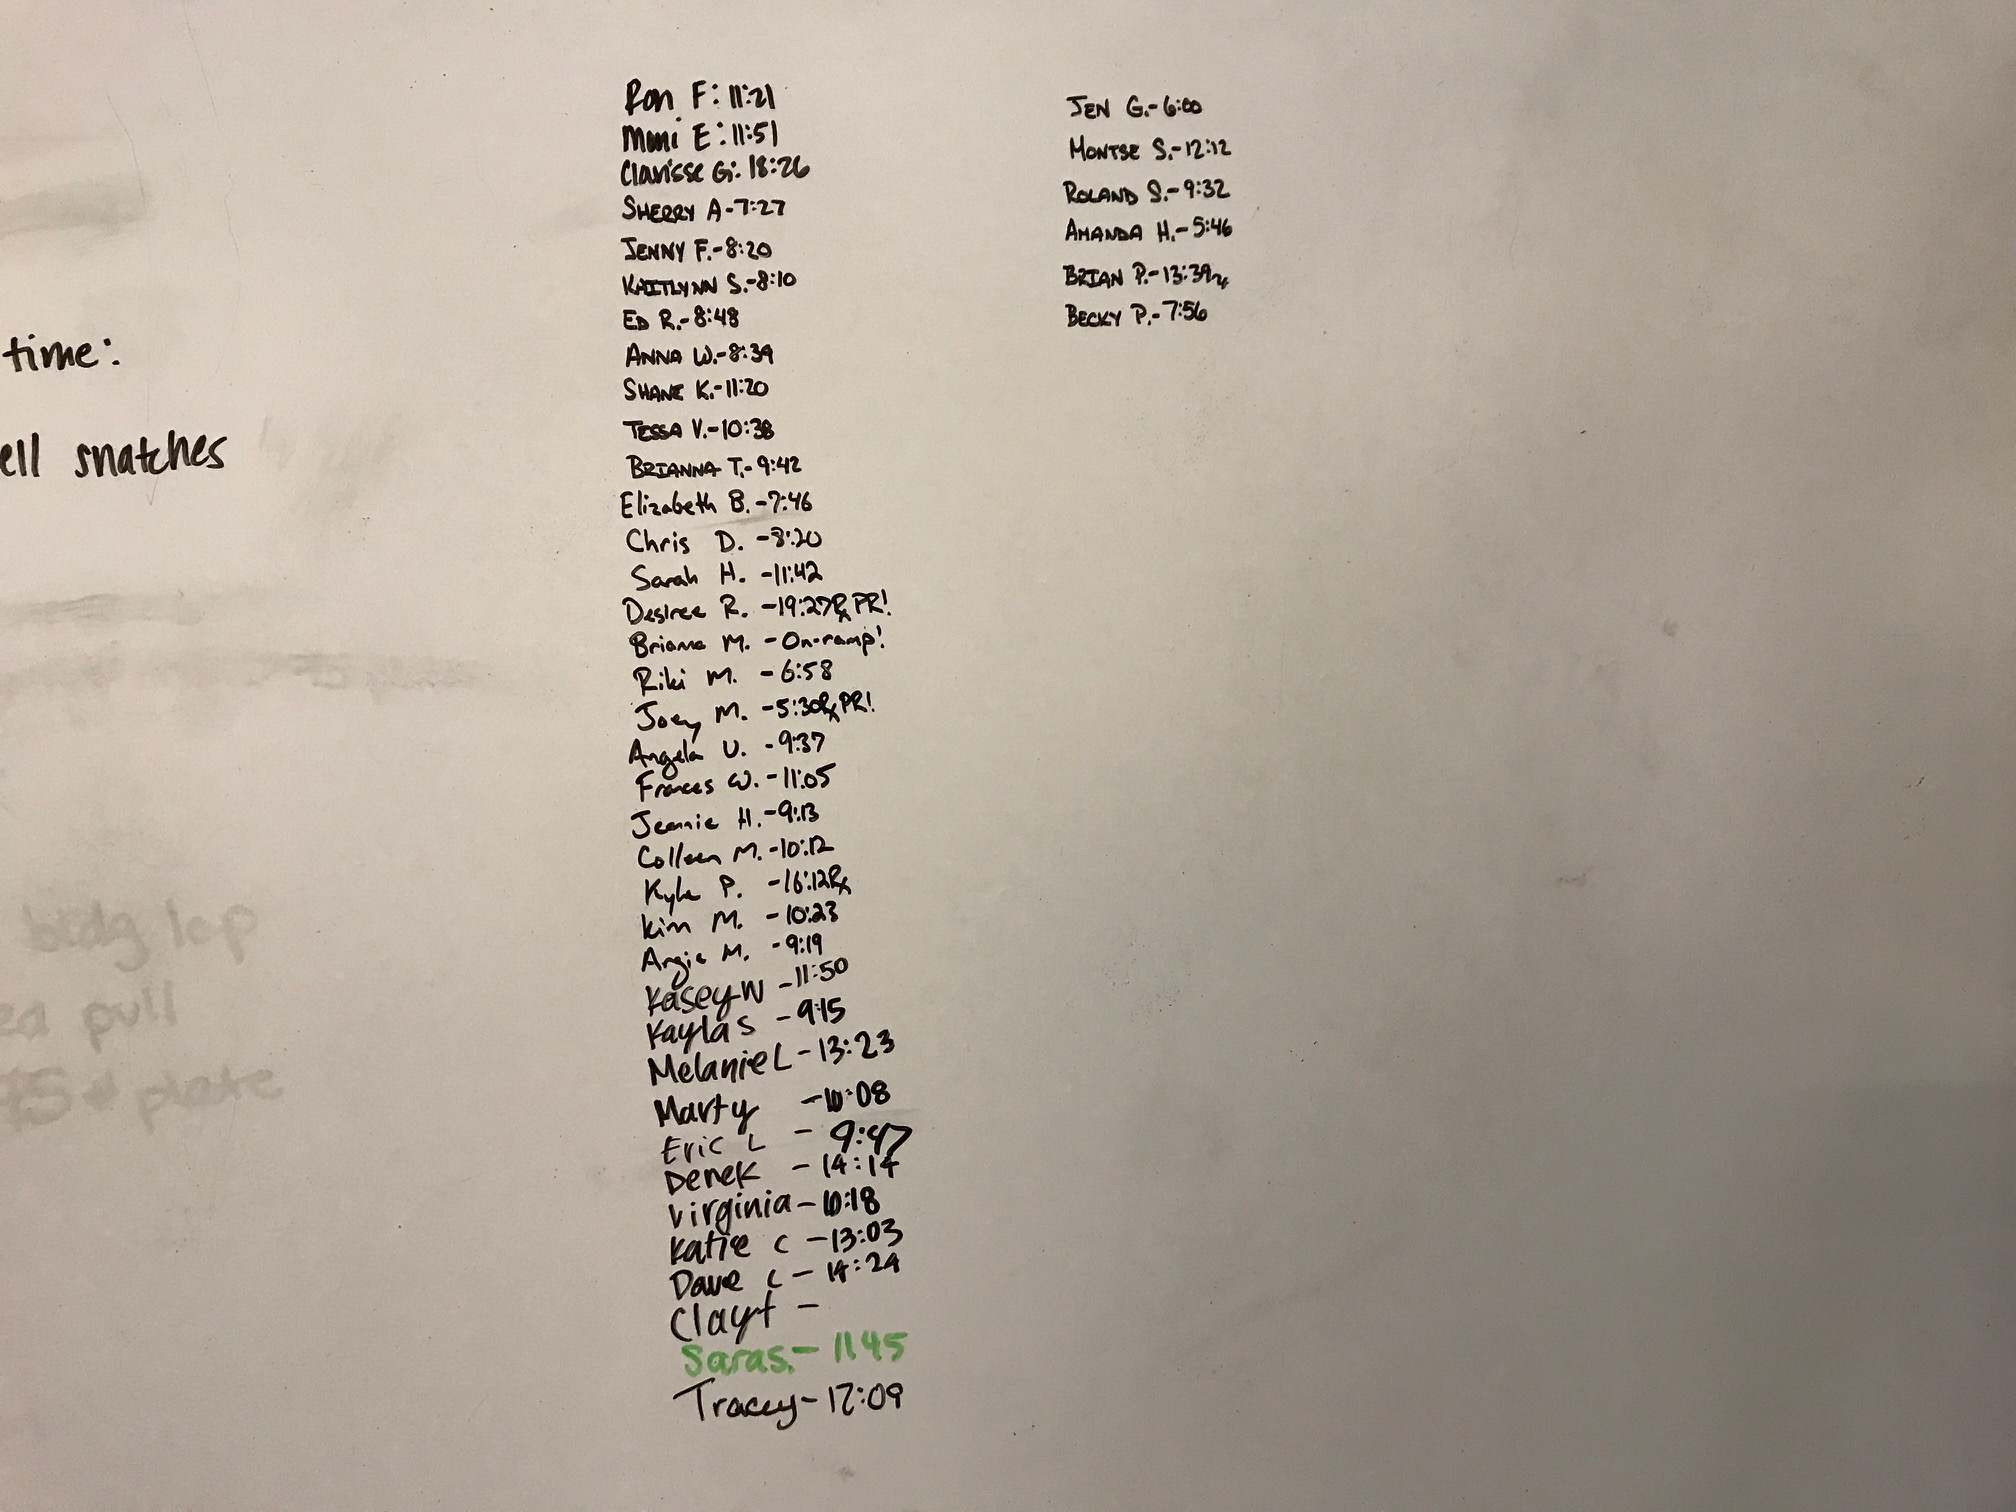 time:
ell snatches
bldg lap
pull
plate
Ron F: 11:21
Mimi E: 11:51
Clarisse G: 18:26
SHERRY A-7:27
JENNY F.-8:20
KAITLYNN S.-8:10
ED R.-8:48
ANNA W.-8:39
SHANE K.-11:20
TESSA V.-10:38
BRIANNA T.-9:42
Elizabeth B.-7:46
Chris D. -8:20
Sarah H. -11:42
Desiree R. -19:27Rx PR!
Briana M. -On-ramp!
Riki M. -6:58
Joey M. -5:30Rx PR!
Angela U. -9:37
Frances W. -11:05
Jeannie H.-9:13
Colleen M.-10:12
Kyle P. -16:12Rx
Kim M. -10:23
Angie M. -9:19
Kasey W -11:50
Kayla S -9:15
Melanie L-13:23
Marty -10:08
Eric L - 9:47
Derek -14:14
Virginia-10:18
Katie C -13:03
Dave C - 14:24
Clayt -
Sara S.- 1145
Tracey- 12:09
JEN G.-6:00
MONTSE S.-12:12
ROLAND S.-9:32
AMANDA H.-5:46
BRIAN P.-13:39Rx
BECKY P.-7:56